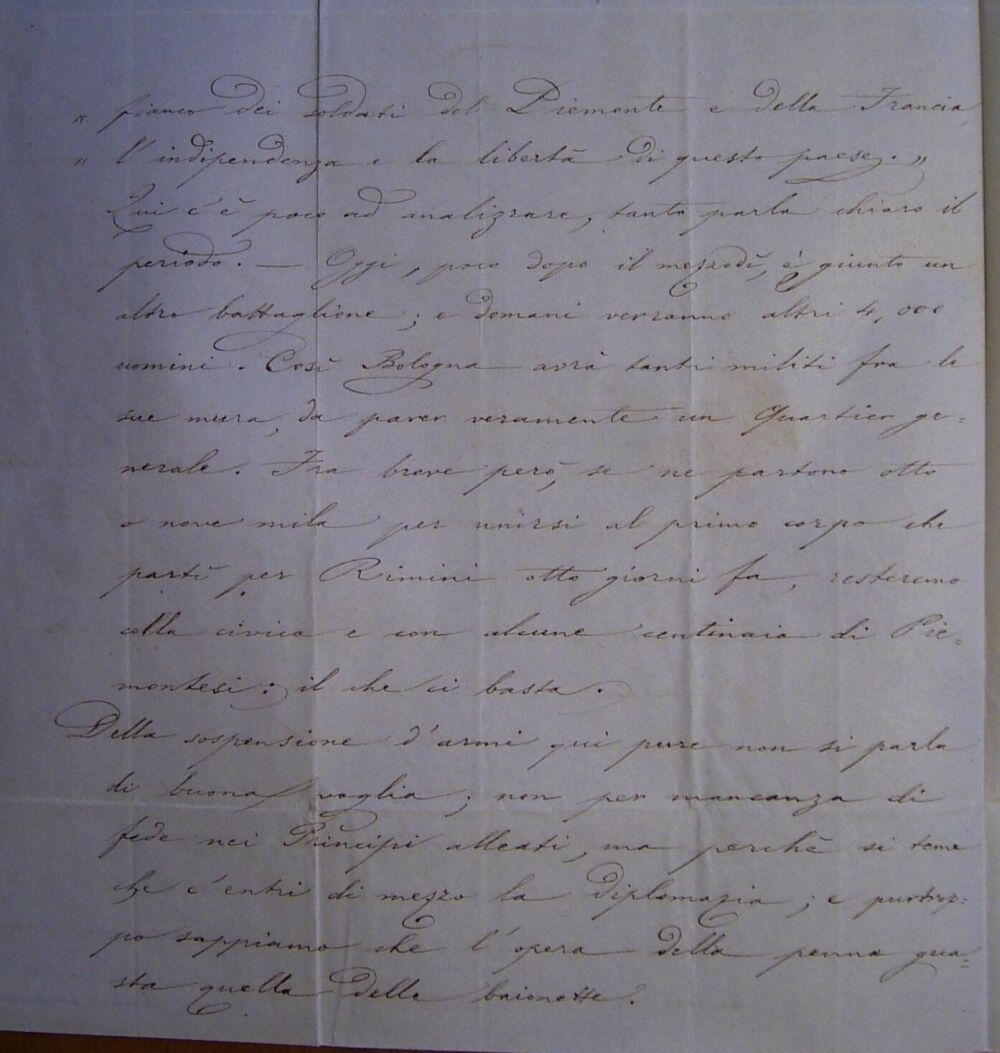 " fianco dei soldati del Piemonte e della Francia,
" l'indipendenza e la libertà di questo paese. "
Qui c'è poco ad analizzare, tanto parla chiaro il
periodo. — Oggi, poco dopo il mezzodì, è giunto un
altro battaglione; e domani verranno altri 4,000
uomini. Così Bologna avrà tanti militi fra le
sue mura, da parer veramente un Quartier ge=
nerale. Fra breve però, se ne partono otto
o nove mila per unirsi al primo corpo che
partì per Rimini otto giorni fa, resteremo
colla civica e con alcune centinaia di Pie=
montesi: il che ci basta.
Della sospensione d'armi qui pure non si parla
di buona voglia; non per mancanza di
fede nei Principi alleati, ma perchè si teme
che c'entri di mezzo la diplomazia; e purtrop=
po sappiamo che l'opera della penna gua=
sta quella delle baionette.